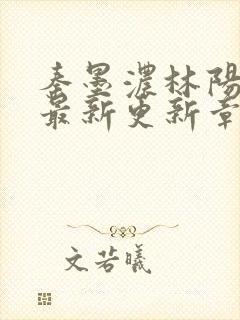 秦墨濃林陽
最新更新章
文若曦